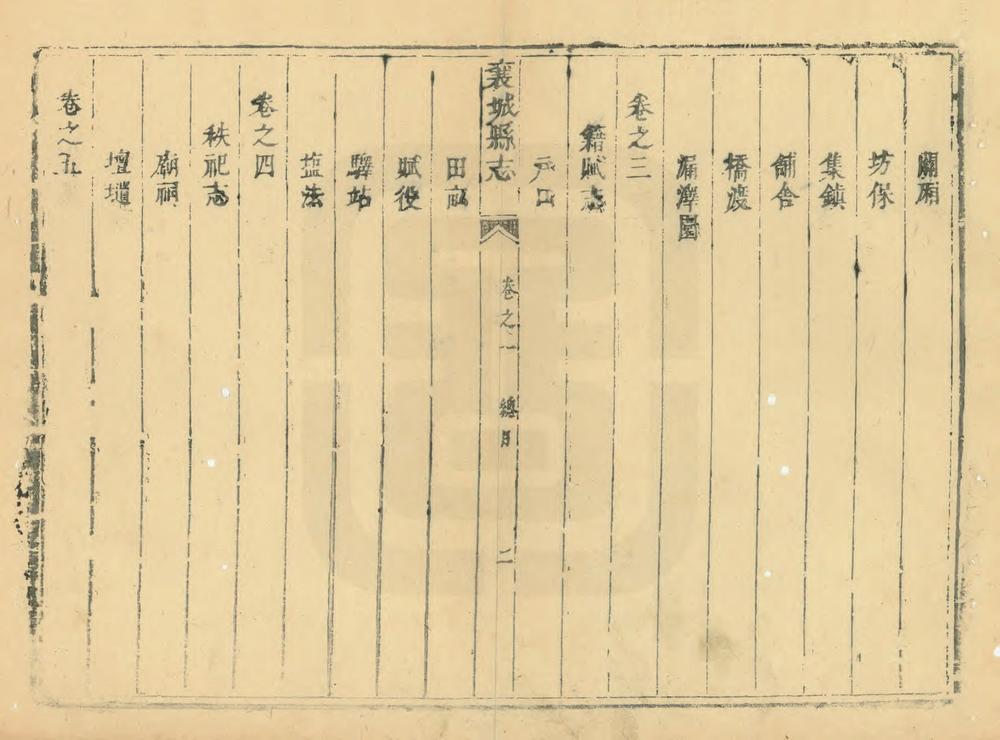 關廂
坊保
集鎮
舖舎
橋渡
漏澤園
卷之三
籍賦志
戸口
襄城縣志
卷之一
總目
二
田畝
賦役
驛站
塩法
卷之四
秩祀志
廟祠
壇壝
卷之五